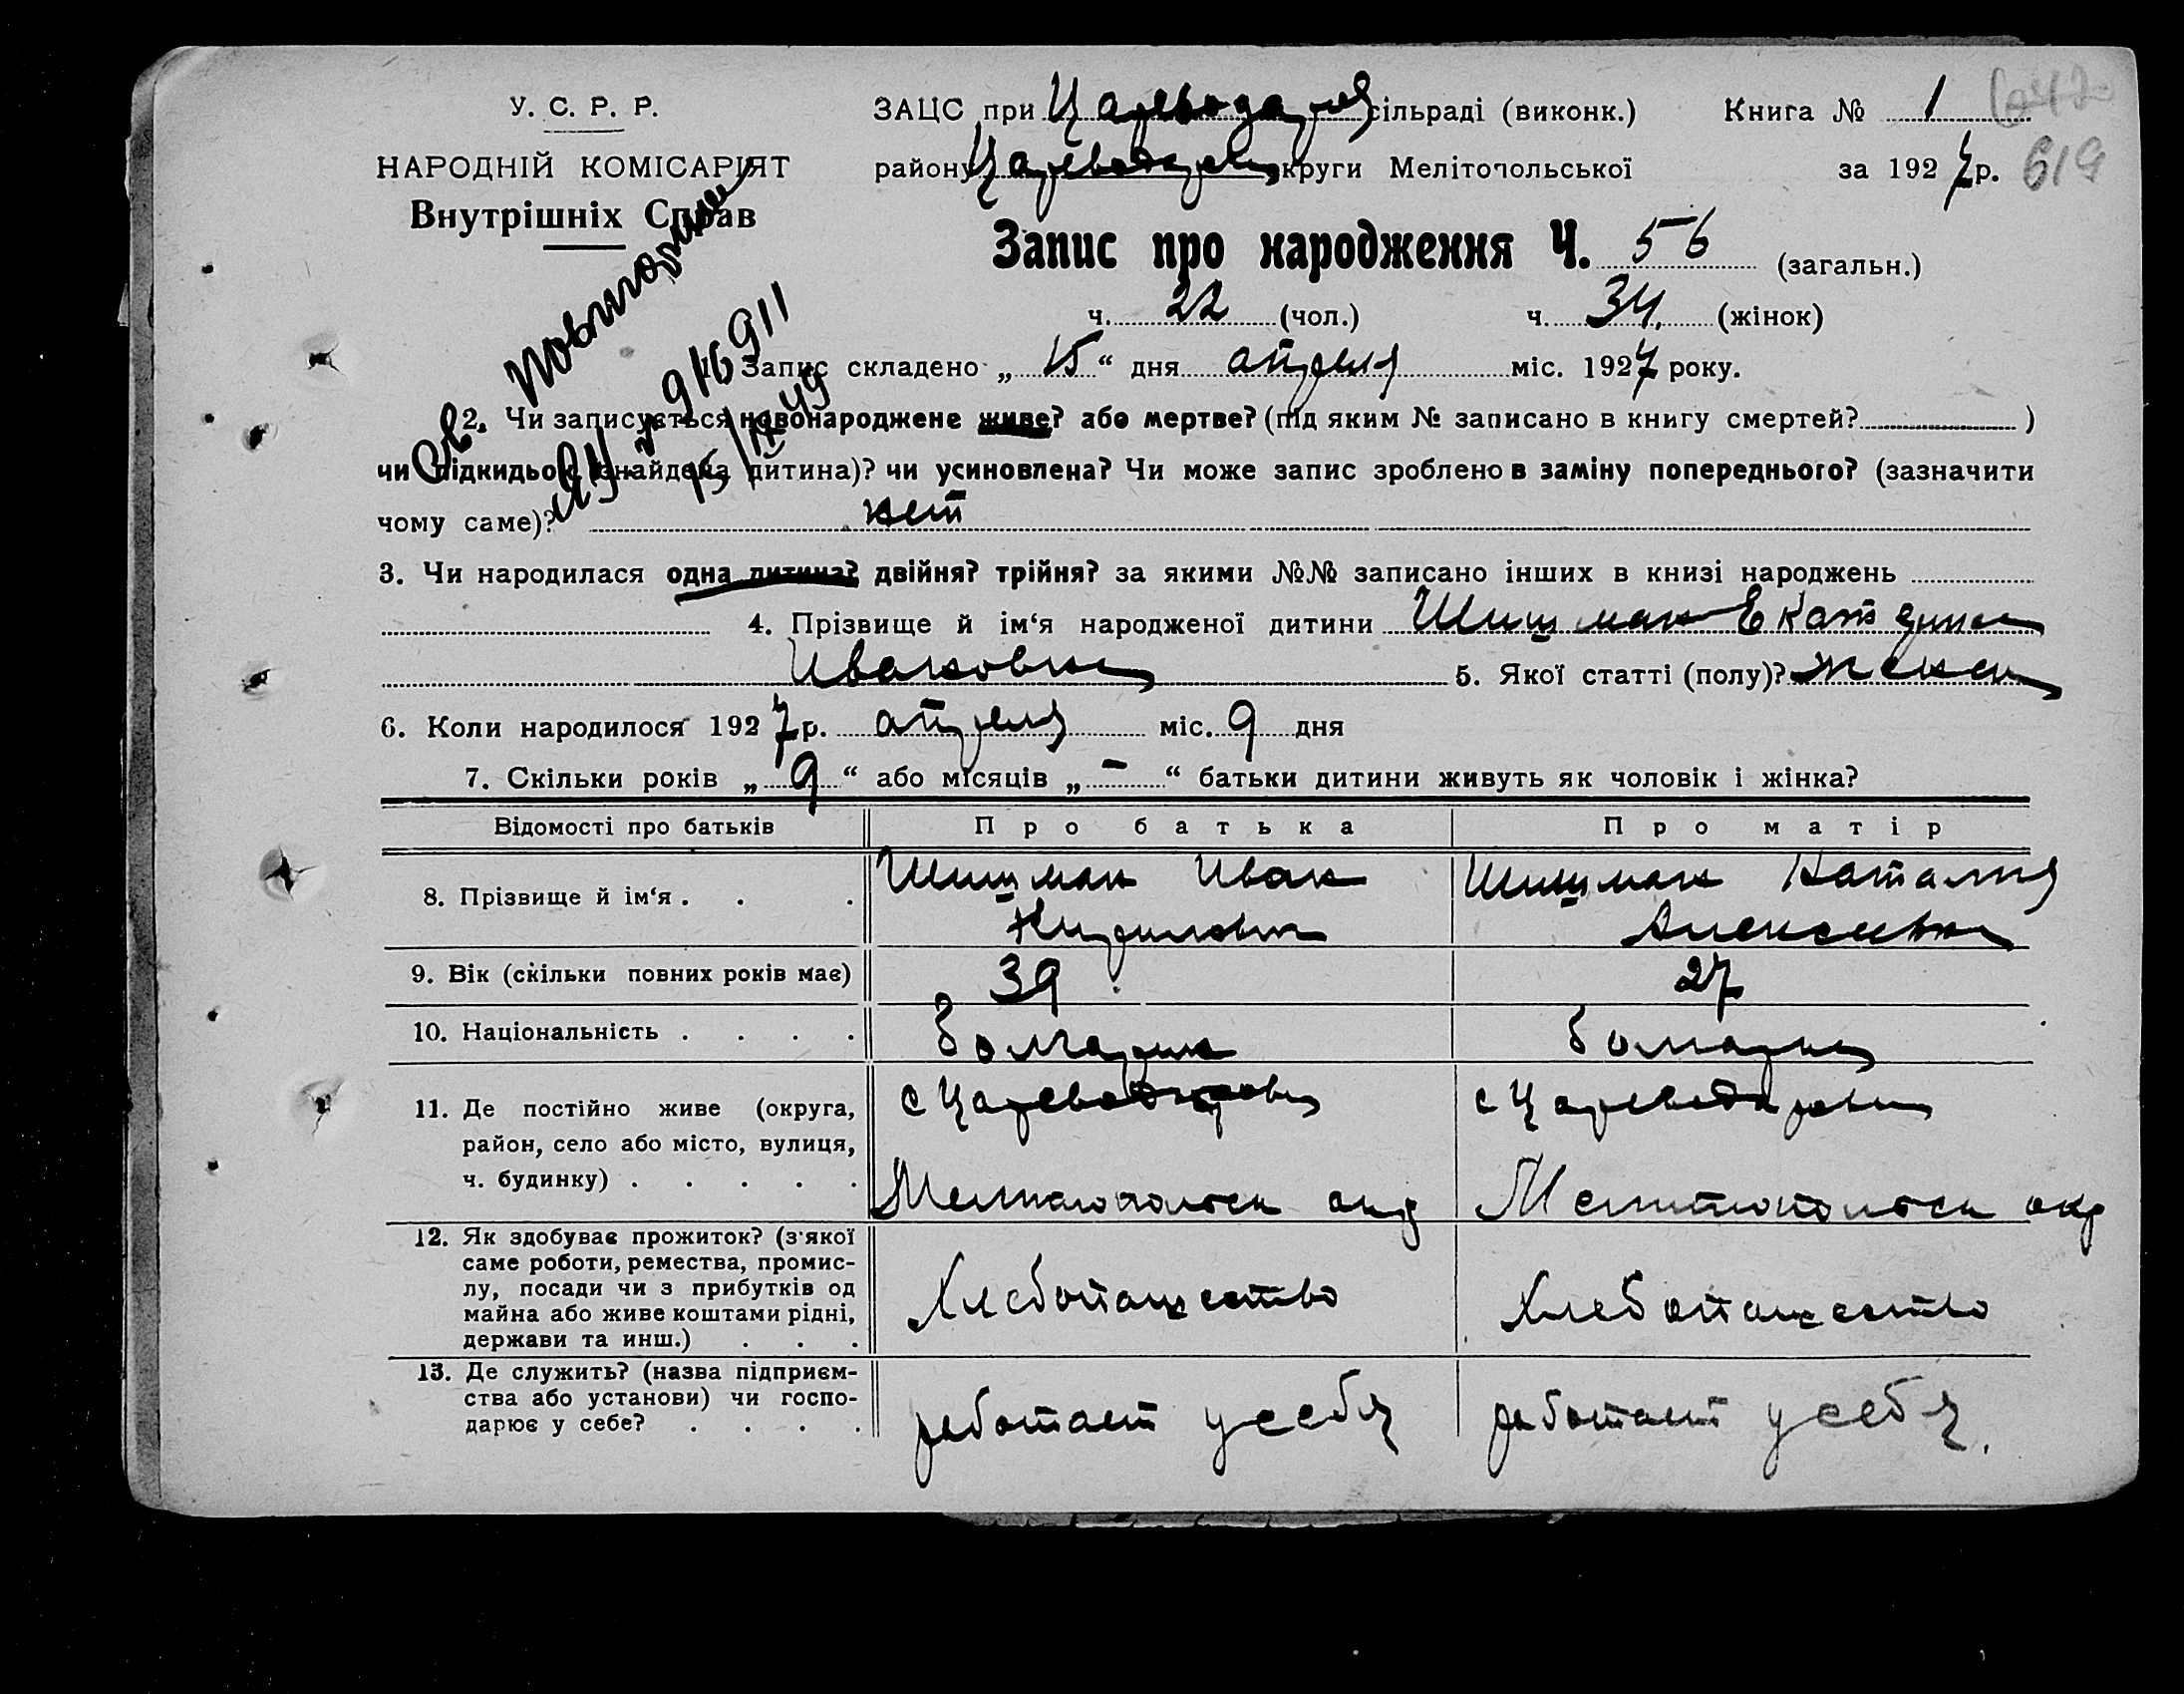 У. С. Р. Р.
НАРОДНІЙ КОМІСАРІЯТ
Внутрішніх Справ
ЗАЦС при Царевода сільраді (виконк.) Книга № 1
району округи Мелітопольської за 1927 р. 619
Запис про народження Ч. 56 (загальн.)
ч. 22 (чол.) ч. 34 (жінок)
1. Запис складено „15“ дня апреля міс. 1927 року.
2. Чи записується новонароджене живе? або мертве? (під яким № записано в книгу смертей? )
чи підкидьок (знайдена дитина)? чи усиновлена? Чи може запис зроблено в заміну попереднього? (зазначити
чому саме)? нет
3. Чи народилася одна дитина? двійня? трійня? за якими №№ записано інших в книзі народжень
4. Прізвище й ім‘я народженої дитини Шишман Екатерина
Ивановна 5. Якої статті (полу)? женск
6. Коли народилося 1927 р. апреля міс. 9 дня
7. Скільки років „9“ або місяців „–“ батьки дитини живуть як чоловік і жінка?
Відомості про батьків Про батька Про матір
8. Прізвище й ім‘я . . . Шишман Иван Кирилович Шишман Наталия Алексеевна
9. Вік (скільки повних років має) 39 27
10. Національність . . . . болгарин болгарка
11. Де постійно живе (округа, с Царев с Царев
район, село або місто, вулиця,
ч. будинку) . . . . . Мелитопольск окр Мелитопольск окр
12. Як здобуває прожиток? (з‘якої
саме роботи, ремества, промис-
лу, посади чи з прибутків од
майна або живе коштами рідні, Хлебопашество Хлебопашество
держави та инш.) . . .
13. Де служить? (назва підприєм-
ства або установи) чи госпо-
дарює у себе? . . . . работает у себя работает у себя.